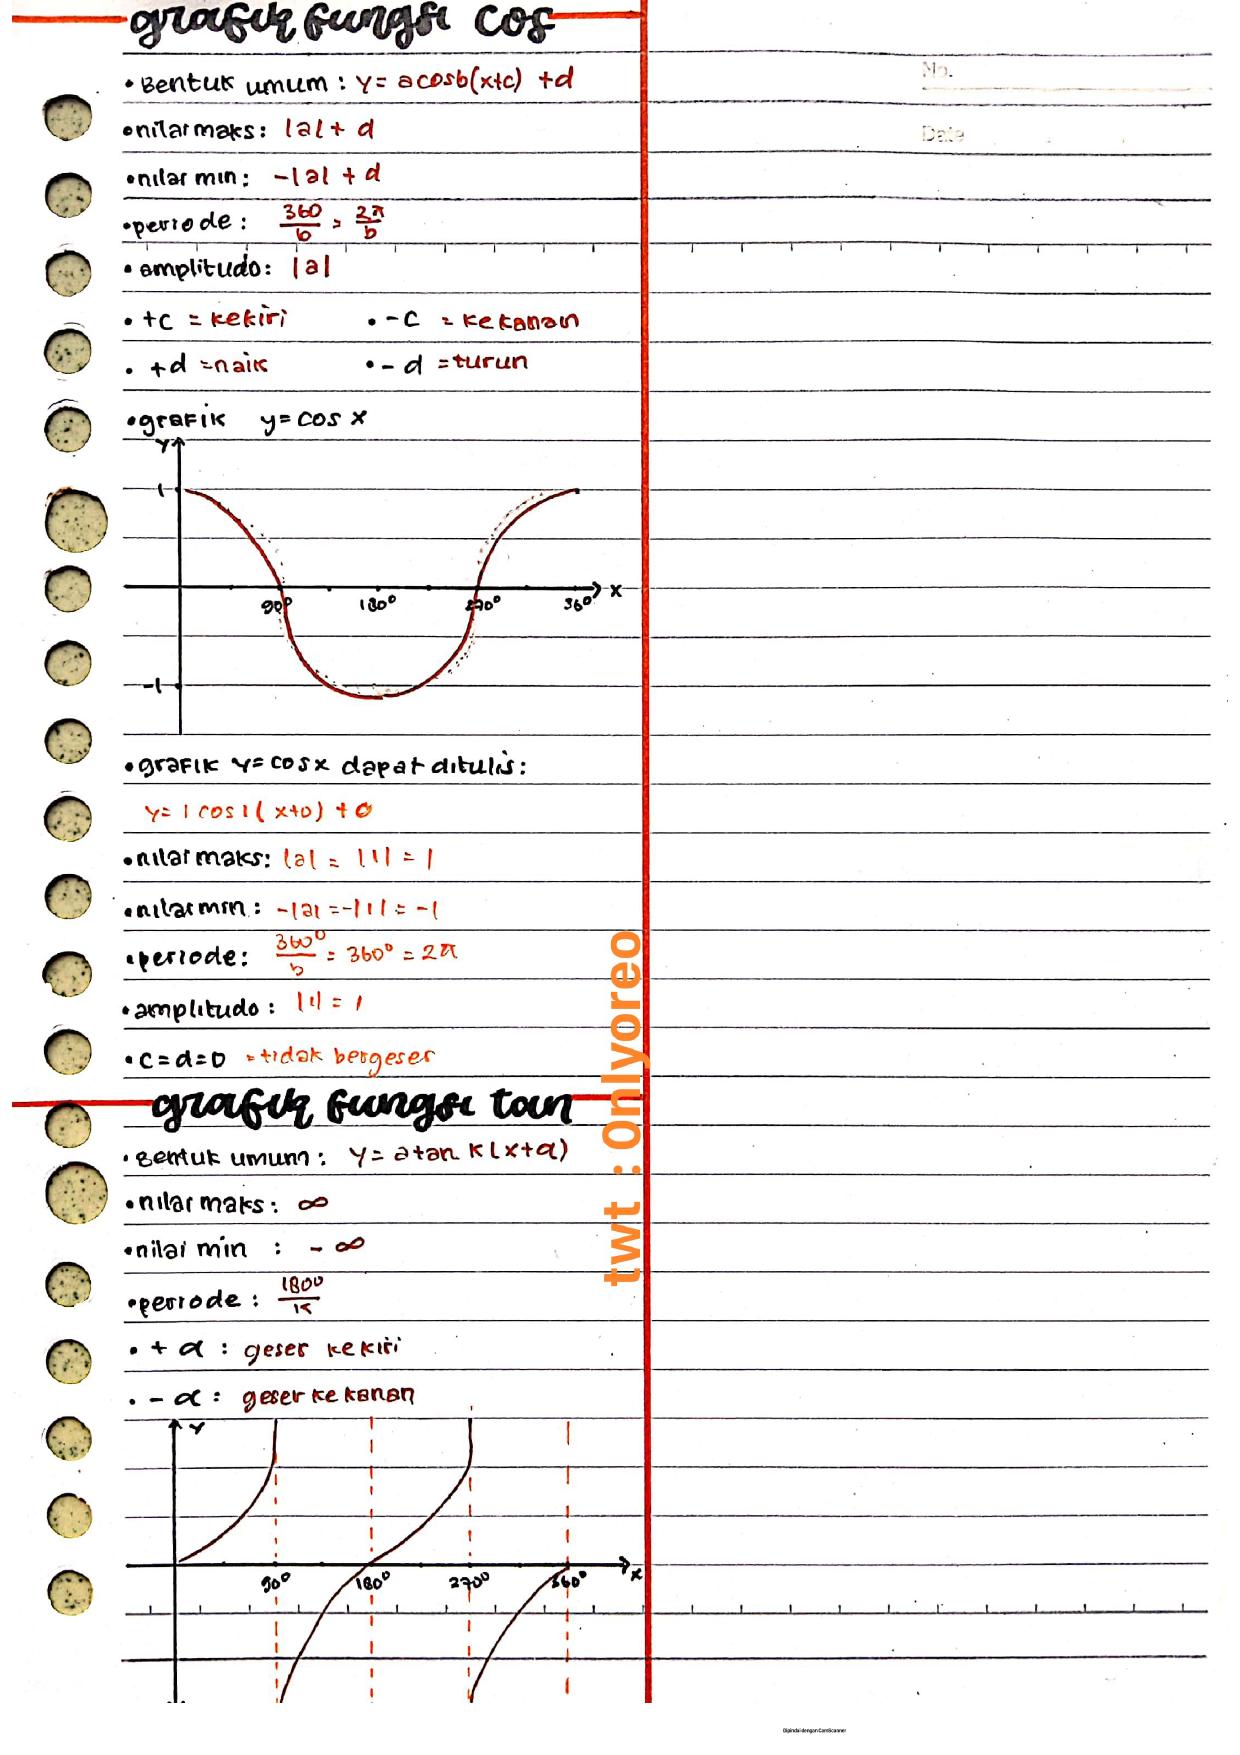 grafik fungsi cos
No.
• Bentuk umum : y = a cos b(x+c) + d
• nilai maks : |a| + d
Date
• nilai min : -|a| + d
• periode : 360/b = 2π/b
• amplitudo : |a|
• +c = kekiri • -c = kekanan
• +d = naik • -d = turun
• grafik y = cos x
Y
1
X
90° 180° 270° 360°
-1
• grafik y = cos x dapat ditulis :
y = 1 cos 1 (x+0) + 0
• nilai maks : |a| = |1| = 1
• nilai min : -|a| = -|1| = -1
• periode : 360°/b = 360° = 2π
• amplitudo : |1| = 1
• c = d = 0 = tidak bergeser
twt : Onlyoreo
grafik fungsi tan
• Bentuk umum : y = a tan k (x+α)
• nilai maks : ∞
• nilai min : - ∞
• periode : 180°/k
• + α : geser kekiri
• - α : geser kekanan
Y
90° 180° 270° 360° x
Dipindai dengan CamScanner